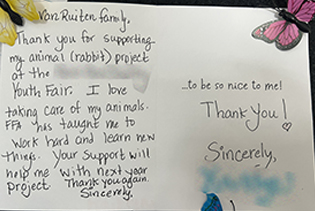 Van Ruiten family,
Thank you for supporting
my animal (rabbit) project
at the
Youth Fair. I love
taking care of my animals.
FFA has taught me to
work hard and learn new
things. Your support will
help me with next year
project. Thank you again.
Sincerely,
...to be so nice to me!
Thank You!
Sincerely,